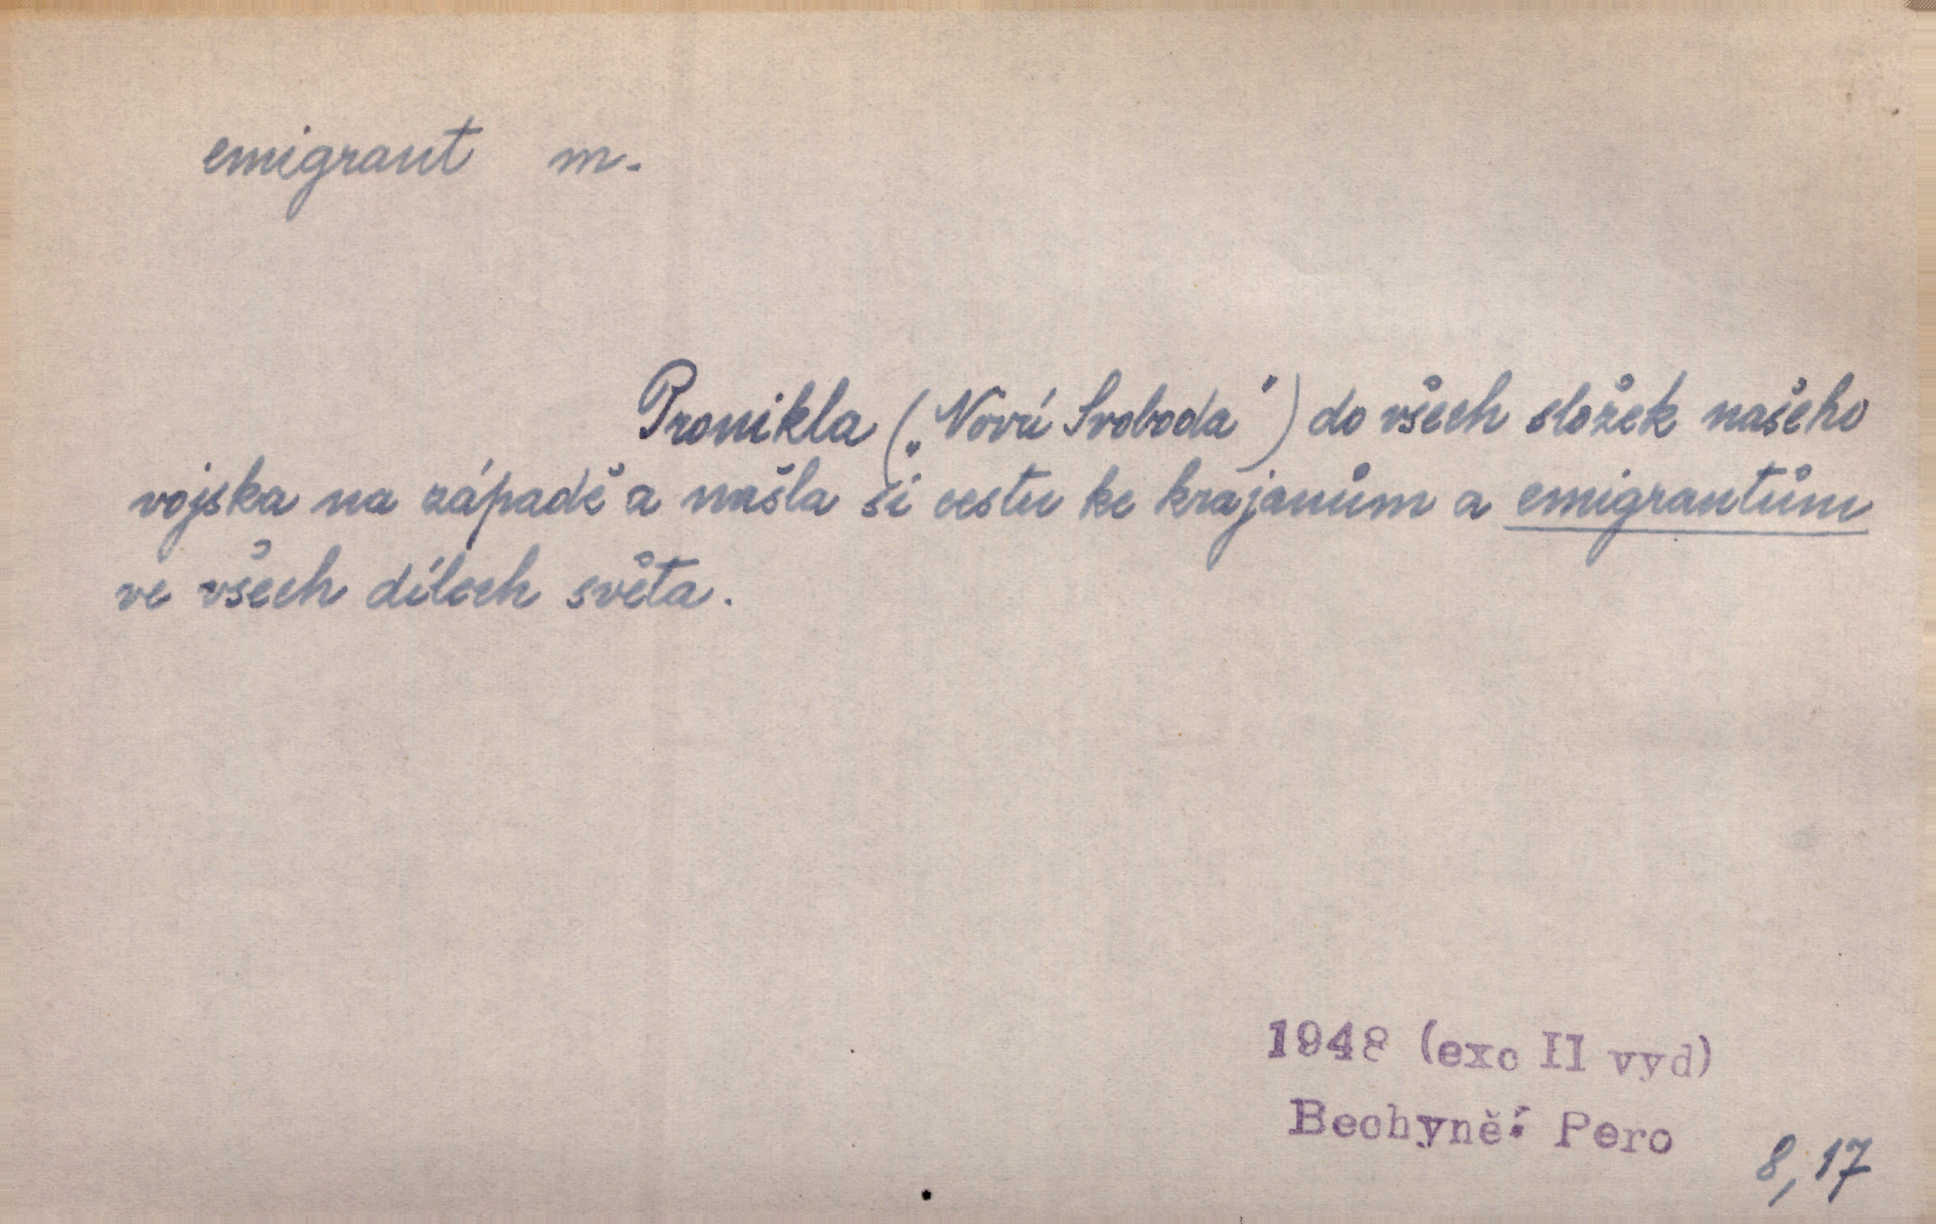 emigrant m.
Pronikla („Nová Svoboda") do všech složek našeho
vojska na západě a našla si cestu ke krajanům a emigrantům
ve všech dílech světa.
1948 (exc II vyd)
Bechyně: Pero
8,17